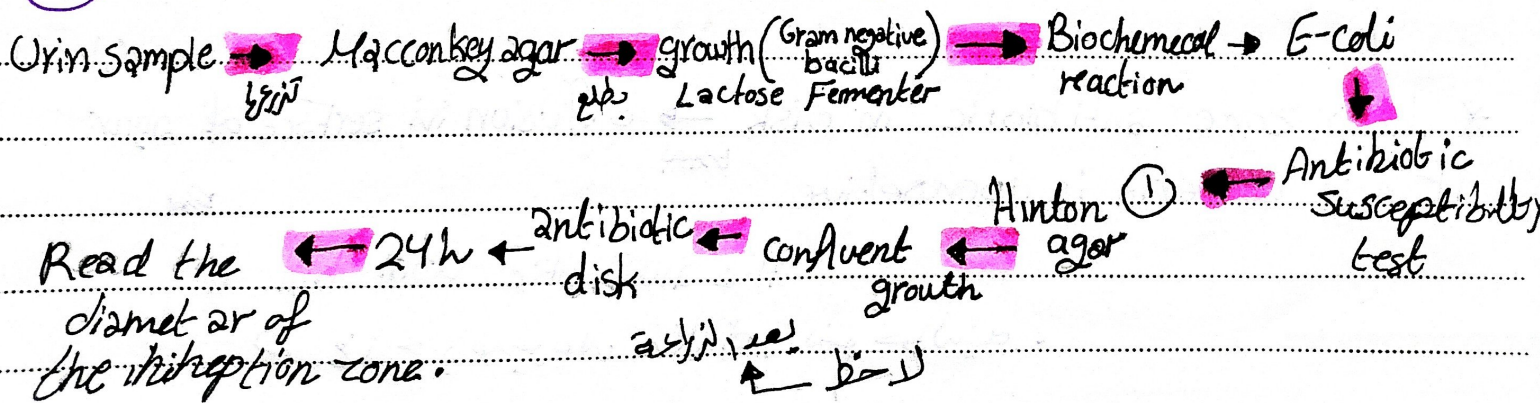 Urin sample → Macconkey agar → growth (Gram negative bacilli) → Biochemecal reaction → E-coli
نزرعها
يطلع
Lactose Fermenter
↓
Antibiotic susceptibility test
← ① Hinton agar
← confluent growth
← antibiotic disk
← 24h
← Read the diametar of the inhiheption zone.
لاحظ
بعد الزراعة